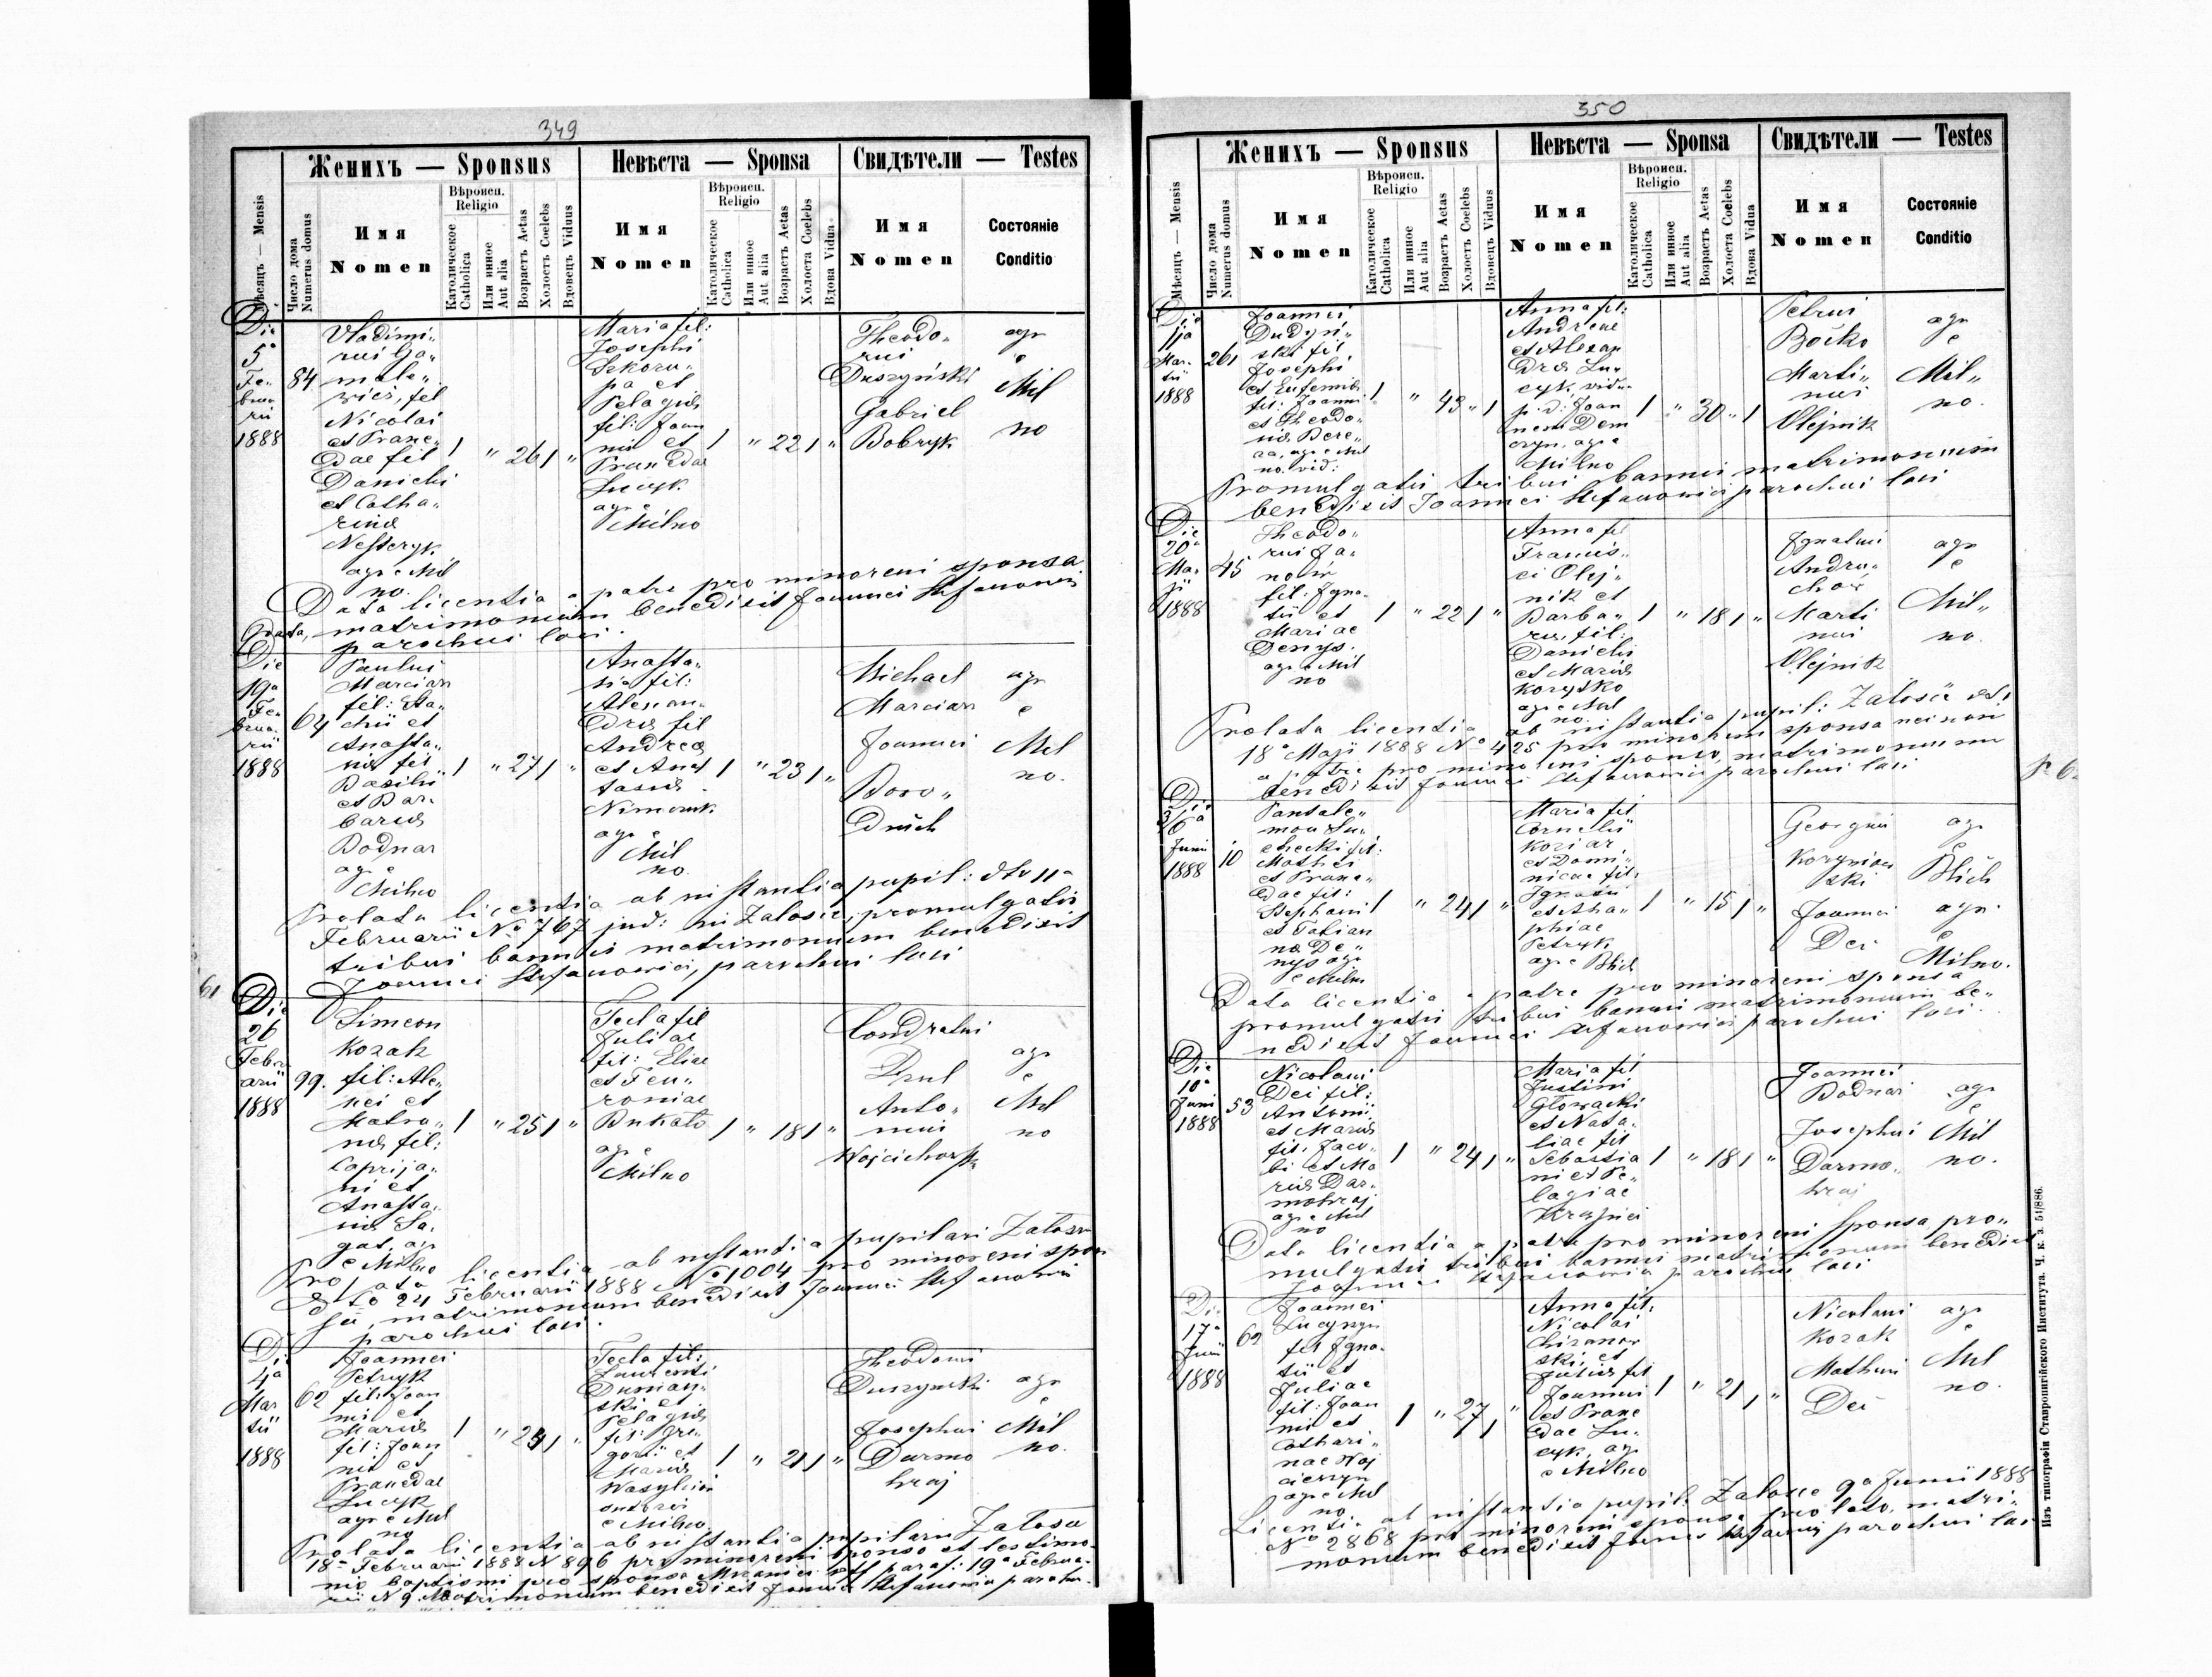 349
Женихъ — Sponsus
Невѣста — Sponsa
Свидѣтели — Testes
Мѣсяцъ — Mensis
Число дома
Numerus domus
Имя
Nomen
Вѣроисп.
Religio
Католическое
Catholica
Или инное
Aut alia
Возрастъ Aetas
Холостъ Coelebs
Вдовецъ Viduus
Имя
Nomen
Вѣроисп.
Religio
Католическое
Catholica
Или инное
Aut alia
Возрастъ Aetas
Холоста Coelebs
Вдова Vidua
Имя
Nomen
Состояніе
Conditio
Die
5a
Fe-
brua
rii
1888
84
Vladimi-
rus
wicz, fil
Nicolai
et Prax-
edae fil
Danielis
et Catha-
rina
Nesteryk
agr e Mil
no.
1 " 26 1 "
Maria fil:
Josephi
Sikoru-
pa et
Pelagia
fil: Joan
nis et
Praxedae
Lucyk
agr e
Milno
1 " 22 1 "
Theodo-
rus
Duszyński
Gabriel
Bobryk
agr
e
Mil
no
Data licentia a patre pro minoreni sponsa
matrimonium benedixit Joannes Stefanowicz
parochus loci.
Die
19a
Fe-
brua-
rii
1888
64
Paulus
Marcian
fil: Sta-
chii et
Anasta-
siae fil
Basilii
et Bar-
barae
Bodnar
agr e
Milno
1 " 27 1 "
Anasta-
sia fil:
Alexan-
dra fil
Andrea
et Anas
tasiae
agr e
Mil
no.
1 " 23 1 "
Michael
Marcian
Joannes
Boro-
Druch
agr
e
Mil
no.
Prolata licentia ab instantia pupil: dto 11a
Februarii No 767 jud: in Zalosie, promulgatis
tribus bannis matrimonium benedixit
Joannes Stefanowicz, parochus loci
61
Die
26
Febru
arii
1888
99.
Simeon
Kozak
fil: Ale-
xei et
Matro-
nae fil:
Caprija-
ni et
Anasta-
siae Sa-
gat, agr
e Milno
1 " 25 1 "
Tecla fil
Juliae
fil: Eliae
et Feu-
roniae
Bukato
agr e
Milno
1 " 18 1 "
Condratus
Prul
Anto-
nius
agr
e
Mil
no
Prolata licentia ab instantia pupilari Zalosce
dto 24 Februarii 1888 No 1004 pro minoreni spon
sa, matrimonium benedixit Joannes Stefanowicz
parochus loci.
Die
4a
Mar
tii
1888
62
Joannes
Petryk
fil: Joan
nis et
Mariae
fil: Joan
nis et
Praxedae
Lucyk
agr e Mil
no
1 " 24 1 "
Tecla fil:
Laurenti
Duman-
ski et
Pelagiae
fil: Gre-
gorii et
Mariae
e Milno
1 " 21 1 "
Theodorus
Duszynski
Josephus
Darmo
hraj
agr
e
Mil
no.
Prolata licentia ab instantia pupilari Zalosce
18a Februarii 1888 N 896 pro minoreni sponso et testimo-
nio baptismi pro sponsa
N 9. Matrimonium benedixit Joannes Stefanowicz paroch-
350
Женихъ — Sponsus
Невѣста — Sponsa
Свидѣтели — Testes
Мѣсяцъ — Mensis
Число дома
Numerus domus
Имя
Nomen
Вѣроисп.
Religio
Католическое
Catholica
Или инное
Aut alia
Возрастъ Aetas
Холостъ Coelebs
Вдовецъ Viduus
Имя
Nomen
Вѣроисп.
Religio
Католическое
Catholica
Или инное
Aut alia
Возрастъ Aetas
Холоста Coelebs
Вдова Vidua
Имя
Nomen
Состояніе
Conditio
Die
11a
Mar-
tii
1888
261
Joannes
Dudyn-
ski fil
Josephi
et Eufemia
fil: Joannis
et Theodo-
siae Bere-
agr e Mil
no. vid:
1 " 43 " 1
Anna fil:
Andreae
et Alexan
dra Lu-
cyk vidu-
p. d: Joan
nem Dem
agr e
Milno
1 " 30 " 1
Petrus
Boćko
Marti-
nus
Olejnik
agr
e
Mil-
no.
Promulgatis tribus bannis matrimonium
benedixit Joannes Stefanowicz parochus loci
Die
20a
Ma-
ji
1888
45
Theodo-
rus Ja-
nów
fil: Igna-
tii et
Mariae
Denys.
agr e Mil
no
1 " 22 1 "
Anna fil
Francis-
ci Olej-
nik et
Barba-
ra, fil:
Danielis
et Mariae
Korytko
agr e Mil
no.
1 " 18 1 "
Ignatius
Andru-
chów
Marti
nus
Olejnik
agr
e
Mil-
no.
Prolata licentia ab instantia pupil: Zalosce dto
18a Maji 1888 No 425 pro minoreni sponsa nec non
a patre pro minoreni sponso, matrimonium
benedixit Joannes Stefanowicz parochus loci
Die
3/6a
Junii
1888
10
Pantale-
mon Su-
checki fil:
Mathei
et Praxe-
dae fil:
Stephani
et Tatian
nae De-
nys agr
e Milno
1 " 24 1 "
Maria fil
Cornelii
Koziar,
et Domi-
nicae fil:
Ignatii
et Aha-
phiae
Petryk
agr e Blich
1 " 15 1 "
Georgius
ski
Joannes
Dei
agr
e
Blich
agr
e
Milno.
Data licentia a patre pro minoreni sponsa
promulgatis tribus bannis matrimonium be-
nedixit Joannes Stefanowicz parochus loci.
Die
10a
Junii
1888
53
Nicolaus
Dei fil:
Antoni
et Mariae
fil: Jaco-
bi et Ma
riae Dar-
mohraj
agr e Mil
no
1 " 24 1 "
Maria fil
Justini
Głowacki
et Nata-
liae fil
Sebastia
ni et Pe-
lagiae
Krasnici
1 " 18 1 "
Joannes
Bodnar
Josephus
Darmo-
hraj
agr
e
Mil
no.
Data licentia a patre pro minoreni sponsa, pro-
mulgatis tribus bannis matrimonium benedixit
Joannes Stefanowicz parochus loci
Die
17a
Junii
1888
62
Joannes
fil Igna-
tii et
Juliae
fil: Joan
nis et
Cathari-
nae Woj
agr e Mil
no
1 " 27 1 "
Anna fil:
Nicolai
Chrzanow
ski, et
Juliae fil
Joannis
et Praxe
dae Lu-
cyk, agr
e Milno
1 " 21 1 "
Nicolaus
Kozak
Matheus
Dei
agr
e
Mil
no.
Licentia ab instantia pupil: Zalosce 9a Junii 1888
No 2868 pro minoreni sponsa prolata, matri-
monium benedixit Joannes Stefanowicz parochus loci
Изъ типографіи Ставропигійского Института. Ч. к. з. 51/886.